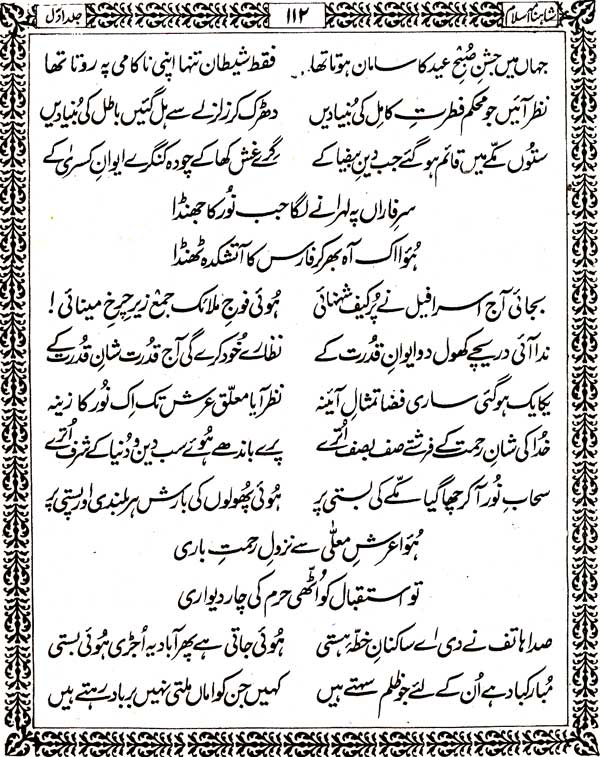 شاہنامۂ اسلام ۱۱۲ جلد اوّل
جہاں میں جشنِ صُبحِ عید کا سامان ہوتا تھا.. فقط شیطان تنہا اپنی ناکامی پہ روتا تھا
نظر آئیں جو محکم فطرتِ کامل کی بُنیادیں دھڑک کر زلزلے سے ہل گئیں باطل کی بُنیادیں
ستوں مکّے میں قائم ہو گئے جب دینِ بیضا کے گرے غش کھا کے چودہ کنگرے ایوانِ کسریٰ کے
سرِ فاراں پہ لہرانے لگا جب نُور کا جھنڈا
ہُوا اک آہ بھر کر فارس کا آتشکدہ ٹھنڈا
بجائی آج اسرافیل نے پُر کیف شہنائی ہُوئی فوجِ ملائک جمع زیرِ چرخِ مینائی!
ندا آئی دریچے کھول دو ایوانِ قدرت کے نظارے خُود کرے گی آج قدرت شانِ قدرت کے
یکایک ہو گئی ساری فضا تمثالِ آئینہ نظر آیا معلّق عرش تک اِک نُور کا زینہ
خُدا کی شانِ رحمت کے فرشتے صف بصف اُترے پرے باندھے ہُوئے سب دین و دُنیا کے شرف اُترے
سحابِ نُور آ کر چھا گیا مکّے کی بستی پر ہُوئی پھولوں کی بارش ہر بلندی اور پستی پر
ہُوا عرشِ معلّٰی سے نزولِ رحمتِ باری
تو استقبال کو اُٹھی حرم کی چار دیواری
صدا ہاتف نے دی اے ساکنانِ خطۂ ہستی ہُوئی جاتی ہے پھر آباد یہ اُجڑی ہُوئی بستی
مُبارکباد ہے اُن کے لئے جو ظُلم سہتے ہیں کہیں جن کو اماں ملتی نہیں برباد رہتے ہیں